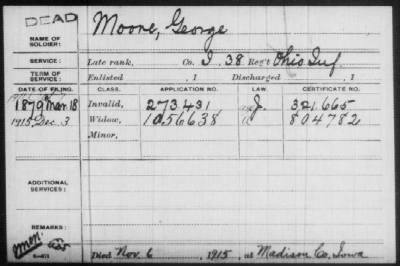 DEAD
Moore, George
NAME OF SOLDIER:
SERVICE: Late rank, Co. I, 38 Reg't Ohio Inf.
TERM OF SERVICE: Enlisted , 1 Discharged , 1
DATE OF FILING. CLASS. APPLICATION NO. LAW. CERTIFICATE NO.
1879 Mar. 18 Invalid, 273.431 J. 321.665
1915 Dec. 3 Widow, 1056638 804782
Minor,
ADDITIONAL SERVICES:
REMARKS:
Died Nov. 6, 1915, at Madison Co, Iowa